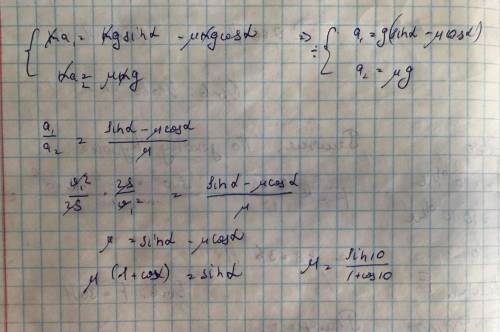 { ma₁ = mg sinα - μmg cosα ⇒ ÷ { a₁ = g(sinα - μcosα)
ma₂ = μmg a₂ = μg
a₁/a₂ = (sinα - μcosα)/μ
v₁²/2S · 2S/v₁² = (sinα - μcosα)/μ
μ = sinα - μcosα
μ (1 + cosα) = sinα μ = sin10/(1 + cos10)